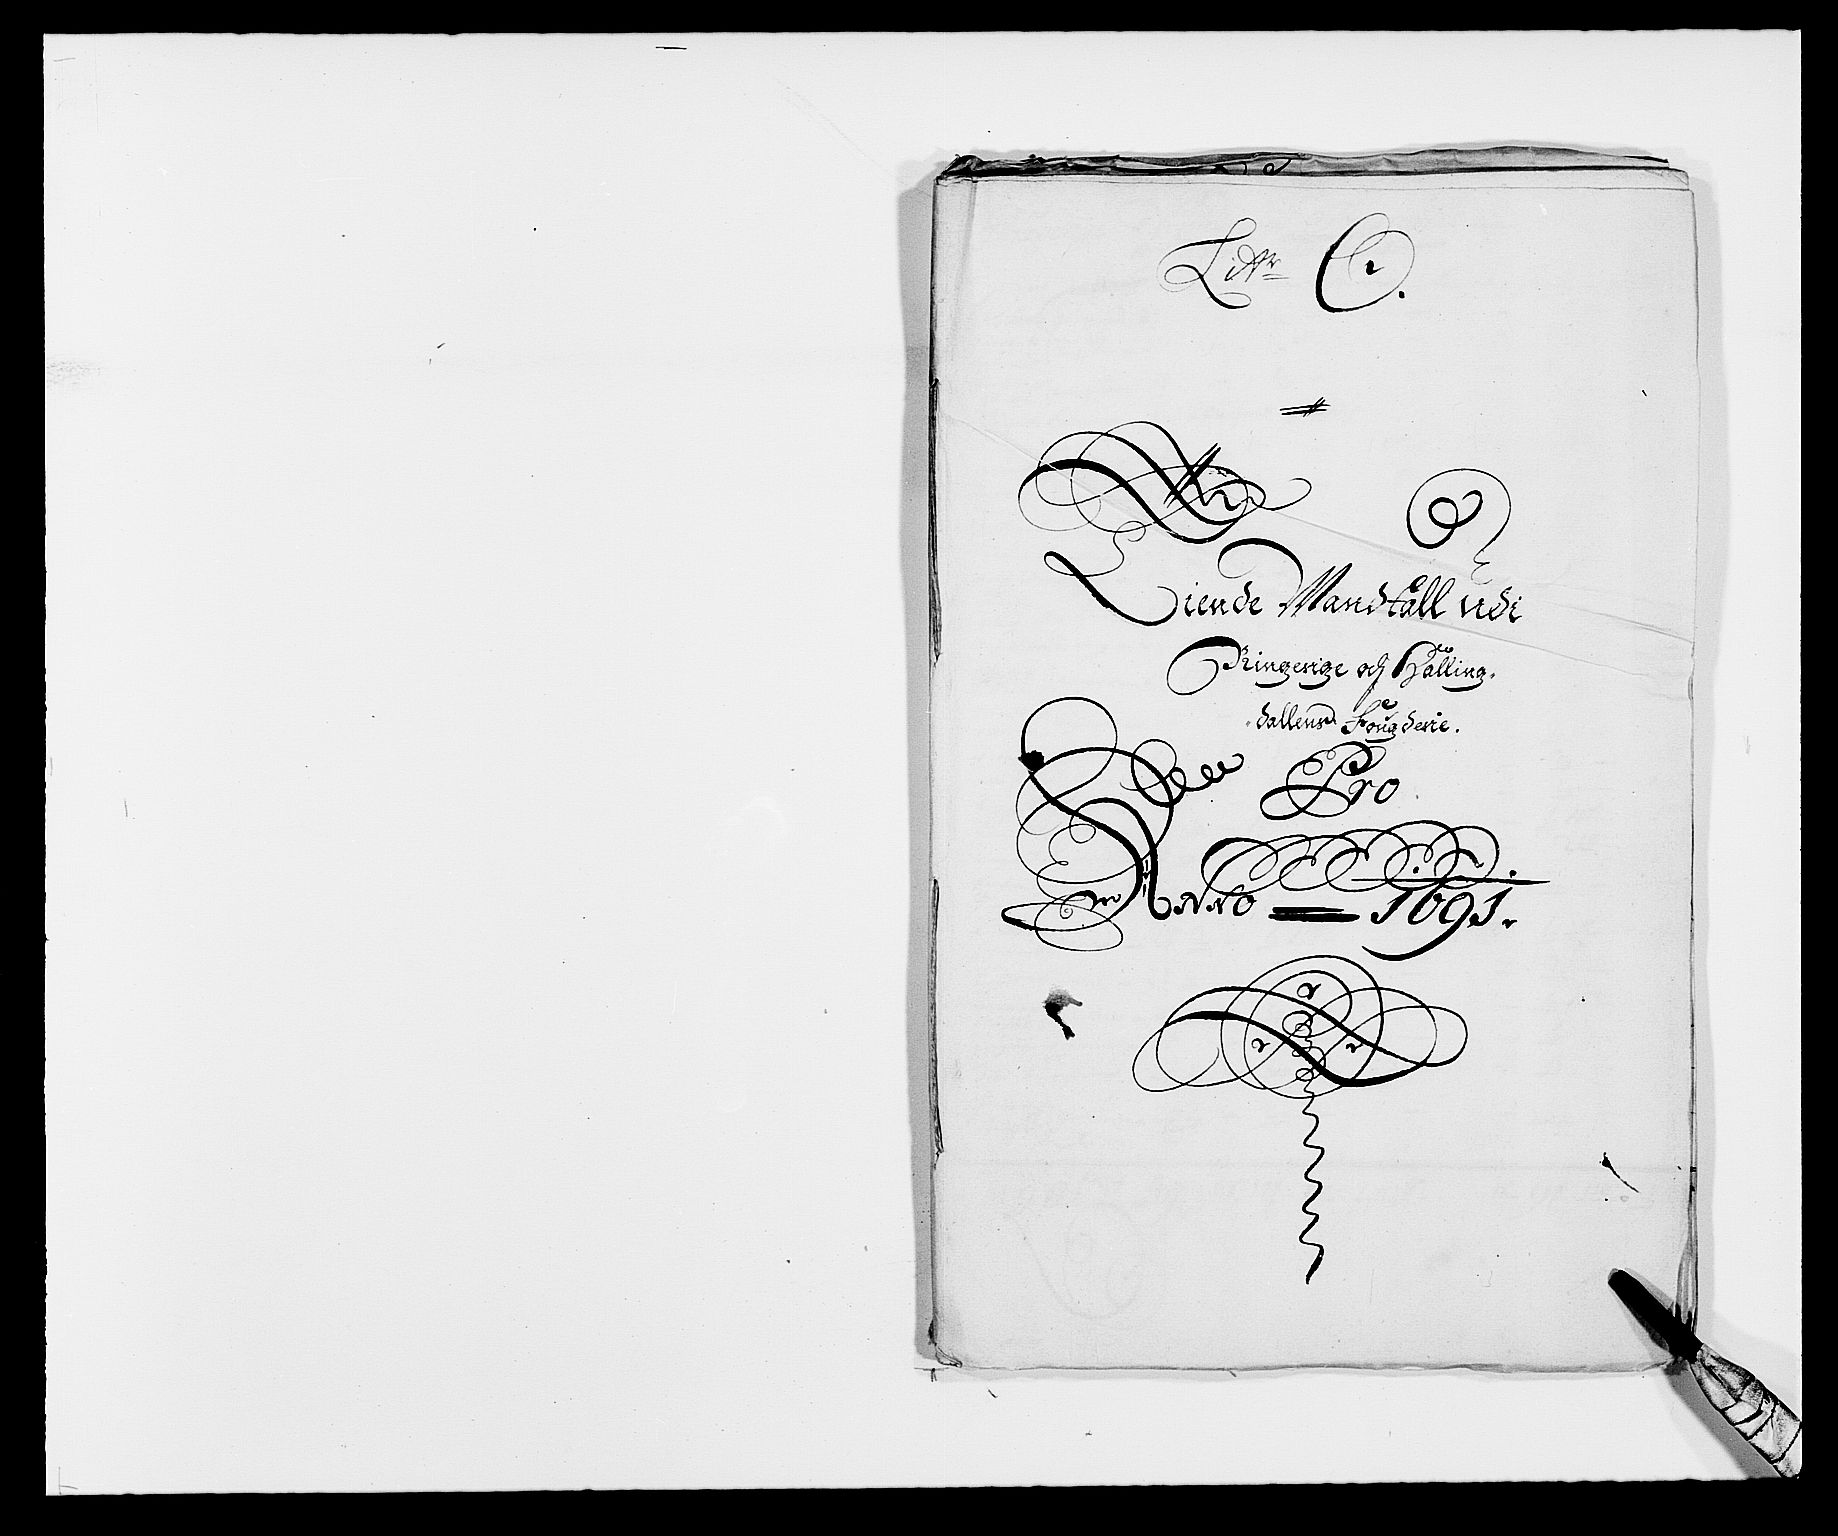 Litr C.
Tiende Mandtall udi
Ringerige och Halling-
dallens Fougderie.
Pro
Anno 1691.